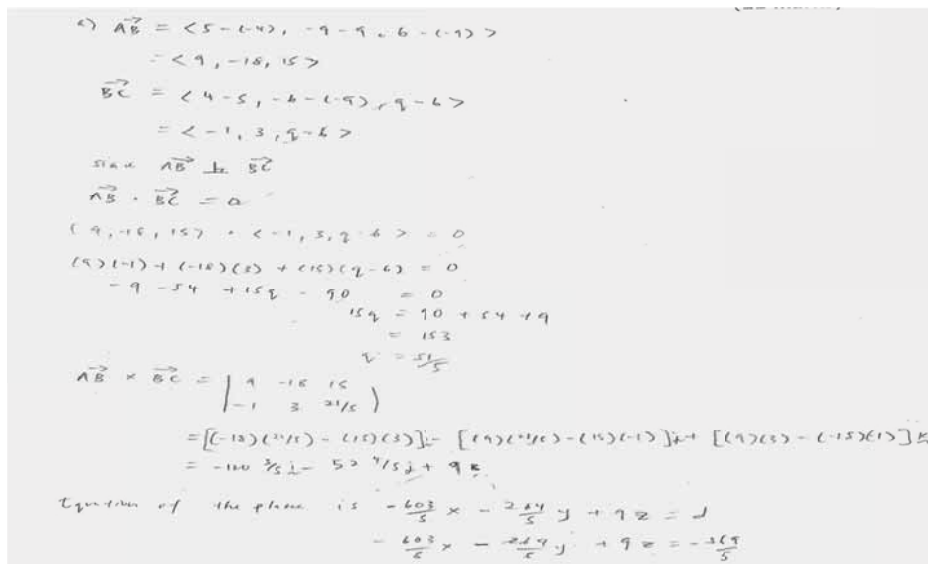 c) AB = <5-(-4), -9-9, 6-(-9)>
= <9, -18, 15>
BC = <4-5, -6-(-9), q-6>
= <-1, 3, q-6>
since AB ⊥ BC
AB · BC = 0
<9, -18, 15> · <-1, 3, q-6> = 0
(9)(-1) + (-18)(3) + (15)(q-6) = 0
-9 -54 +15q - 90 = 0
15q = 90 + 54 + 9
= 153
q = 51/5
AB × BC = | 9 -18 15
-1 3 21/5 )
= [(-18)(21/5) - (15)(3)]i - [(9)(21/5) - (15)(-1)]j + [(9)(3) - (-18)(1)]k
= -120 3/5 i - 52 4/5 j + 9k
Equation of the plane is -603/5 x - 264/5 y + 9z = d
- 603/5 x - 264/5 y + 9z = -369/5